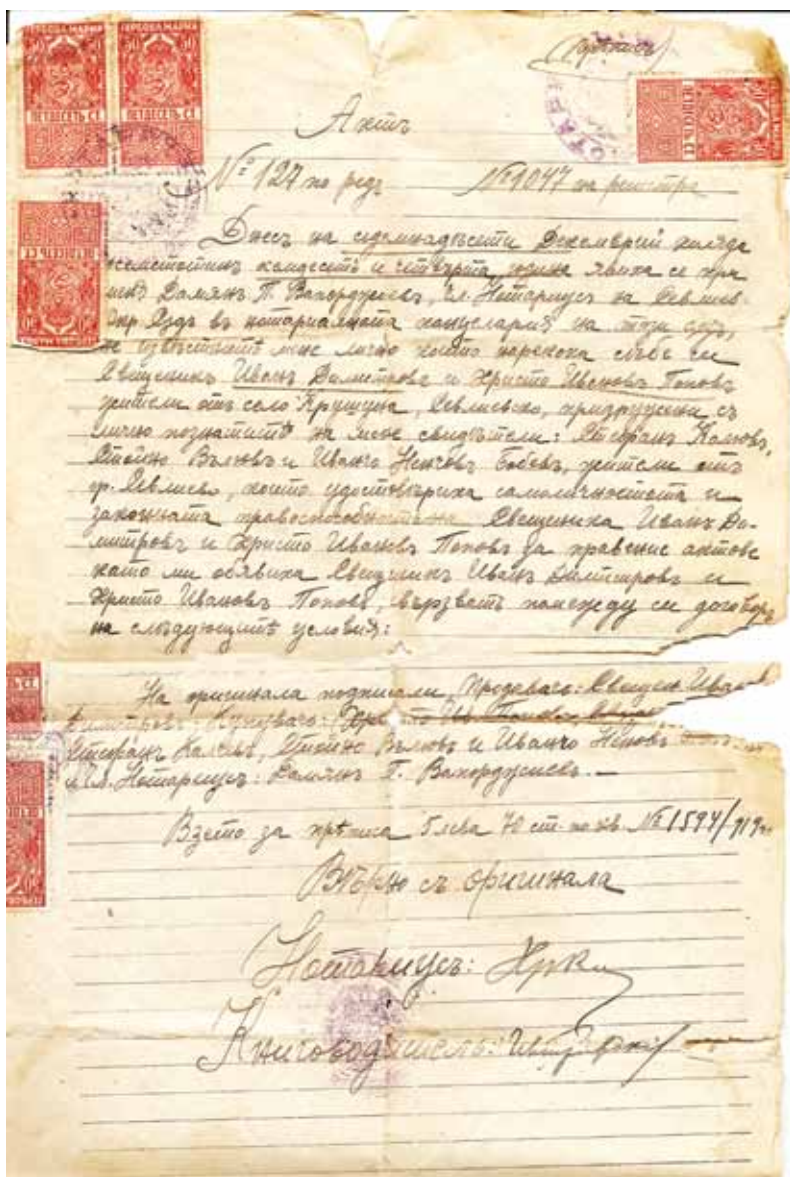 ГЕРБОВА МАРКА ГЕРБОВА МАРКА
50 50 50 50
ПЕТДЕСЕТЪ СТ. ПЕТДЕСЕТЪ СТ.
(Прѣписъ)
Актъ
№ 127 по редъ №1047 на регистра
Днесъ на седемнадѣсети Декемврий хиляда
и четвърта, явиха се при
менъ Дамянъ П. Вапорджиевъ, Нотариусъ на Севлиев.
Окр. Съдъ въ нотариалната канцелария на този съдъ,
не извѣстнитѣ мнѣ лично които нарекоха себе си
Свещеникъ Иванъ Димитровъ и Христо Ивановъ Поповъ
жители отъ село Крушуна, Севлиевско, придружени съ
лично познатитѣ на мене свидѣтели: Стефанъ Калчевъ,
Стойно Вълювъ и Иванчо Ненчовъ, жители отъ
гр. Севлиево, които удостовѣриха самоличността и
законната правоспособность на Свещеника Иванъ Ди-
митровъ и Христо Ивановъ Поповъ за правение актове
като ми обявиха Свещеникъ Иванъ Димитровъ и
Христо Ивановъ Поповъ, свързватъ помежду си договоръ
на слѣдующитѣ условия:
На оригинала подписали Продавачъ: Свещен. Иванъ
Димитровъ, Купувачъ: Христо Ив. Поповъ,
Стефанъ Калчевъ, Стойно Вълювъ и Иванчо Неновъ
Нотариусъ: Дамянъ П. Вапорджиевъ. —
Взето за прѣписа 5 лева 70 ст. по кв. №1594/919
Вѣрно съ оригинала
Нотариусъ:
Книговодитель: